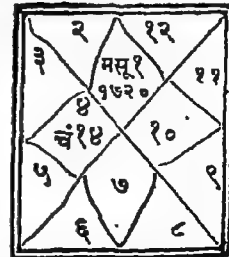 २ १२
३ मसू१ ११
१७२०
४
चं१४ १०
५ ७ ९
६ ८